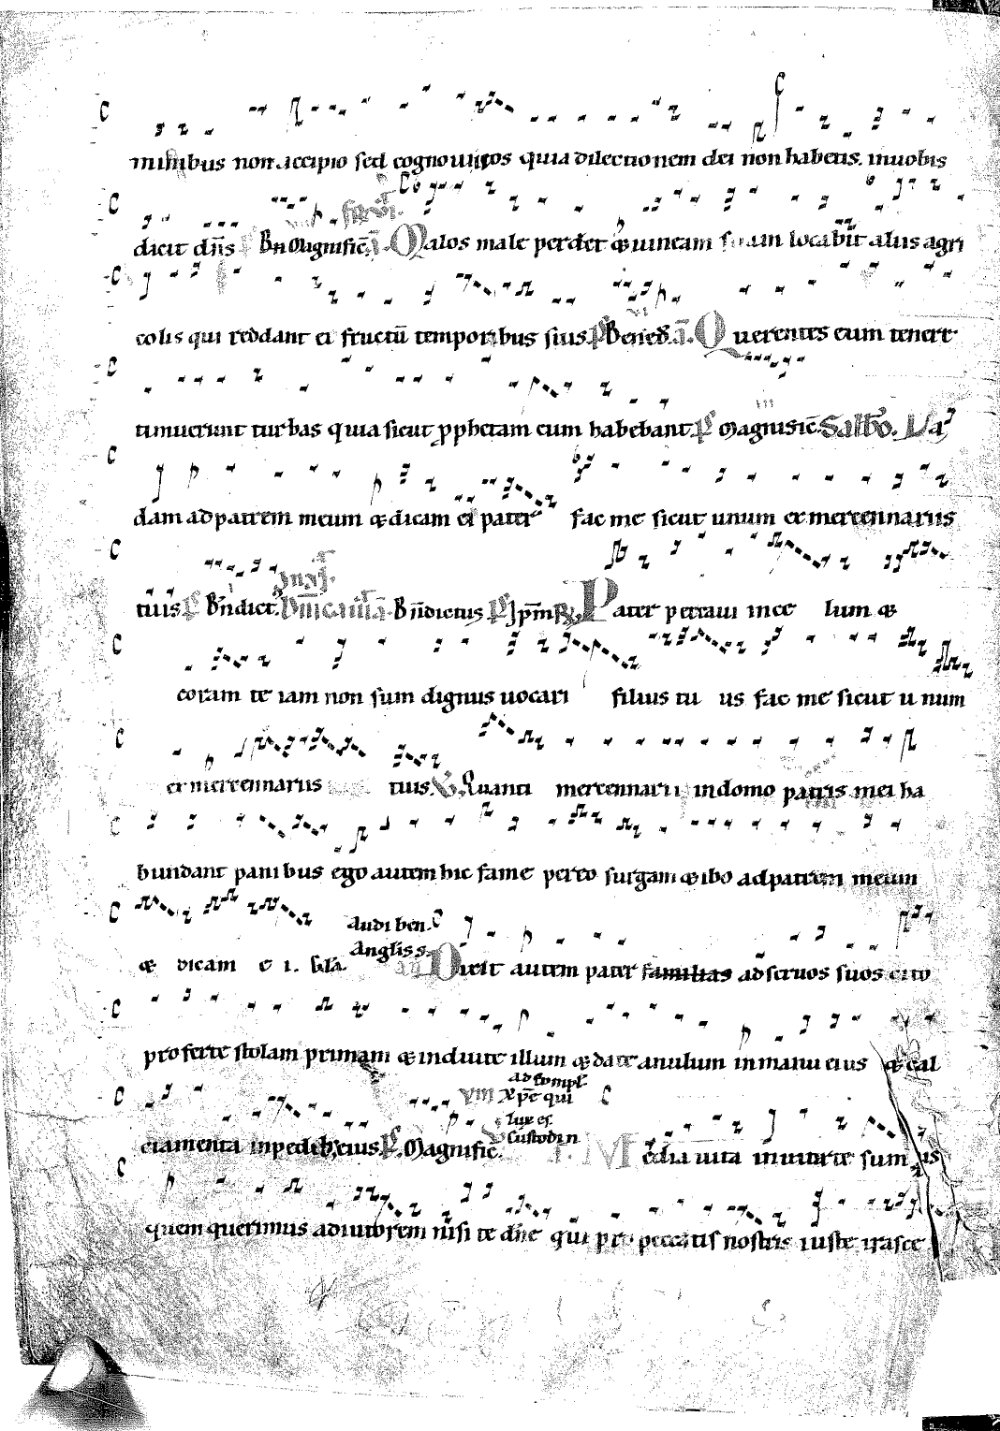 minibus non accipio sed cognoui uos quia dilectionem dei non habetis. inuobis
dicit dn̄s Bn Magnific̄. Malos male perdet & uineam suam locabit aliis agri
colis qui reddant ei fructū temporibus suis. Bened. a. Querentes eum tenere
timuerunt turbas quia sicut pphetam eum habebant. Magnific̄ Sabb̄o. Va
dam ad patrem meum & dicam ei pater fac me sicut unum ex mercennariis
tuis Bn̄dict. Bn̄dictus Pater peccaui in ce lum &
coram te iam non sum dignus uocari filius tu us fac me sicut u num
ex mercennariis tuis. Quanti mercennarii indomo patris mei ha
bundant panibus ego autem hic fame pereo surgam & ibo ad patrem meum
& dicam e i. Audi ben. Anglis s. Dixit autem pater familias ad seruos suos cito
proferte stolam primam & induite illum & date anulum in manu eius & cal
ad Compl. xp̄e qui
lux es.
Custodi n
ciamenta inpedeb; eius. Magnific̄. Media uita inmorte sumus
quem querimus adiutorem nisi te dn̄e qui pro peccatis nostris iuste irasce